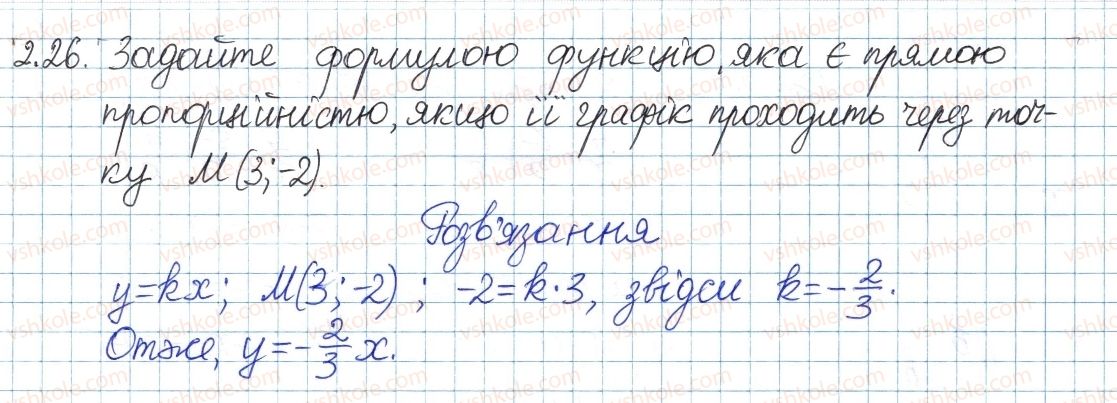 2.26. Задайте формулою функцію, яка є прямою
пропорційністю, якщо її графік проходить через точ-
ку M(3;-2).
Розв'язання
y=kx; M(3;-2); -2=k·3, звідси k=-2/3.
Отже, y=-2/3 x.